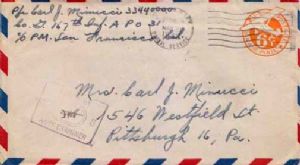 Pfc Carl J. Minucci 33440000
Co. L. 167th Inf. A P O 31
℅ PM. San Francisco, Cal.
6¢
Mrs. Carl J. Minucci
1546 Westfield St
Pittsburgh 16, Pa.
ARMY EXAMINER